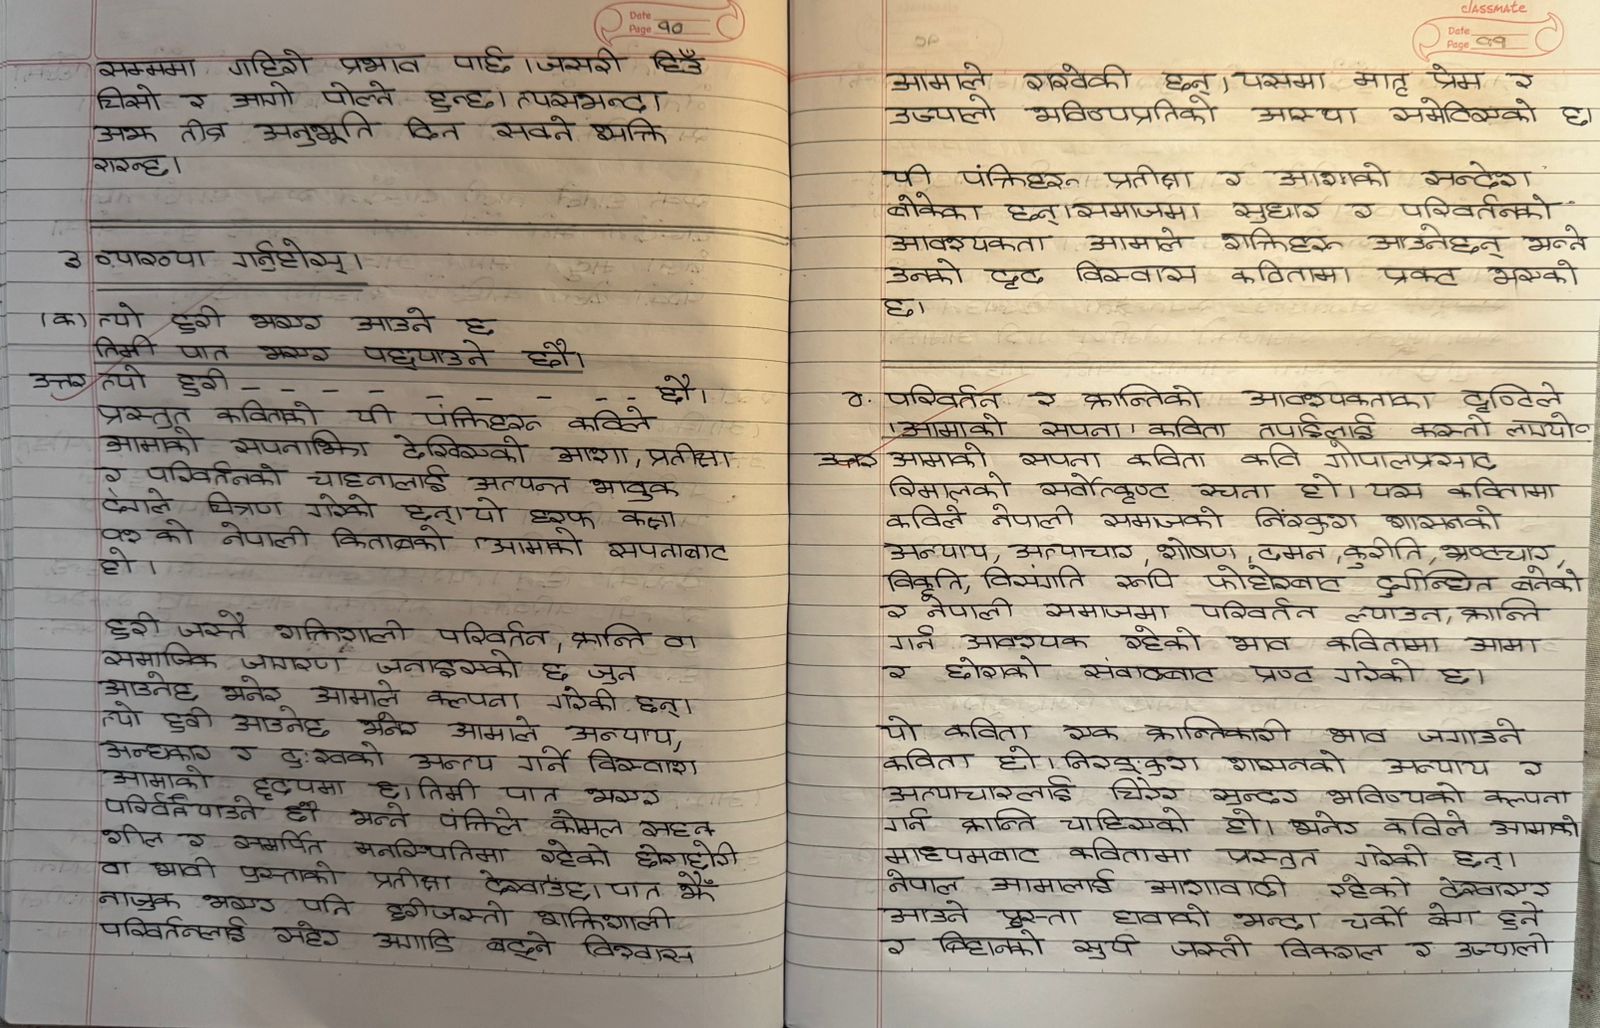 Date
Page १०
सममममा गहिरो प्रभाव पार्छ । जसरी हिउँ
चिसो र आगो पोल्ने हुन्छ। त्यसभन्दा
अझ तीव्र अनुभूति दिन सक्ने व्यक्ति
गरन्छ।
३ व्याख्या गर्नुहोस्।
(क) त्यो हुरी भएर आउने छ
तिमी पात भएर पछ्याउने छौ।
उत्तर त्यो हुरी - - - - - - - - - छौ।
प्रस्तुत कविताको यी पंक्तिहरू कविले
आमाको सपनाभित्र देखिएको आशा, प्रतीक्षा
र परिवर्तनको चाहनालाई अत्यन्त भावुक
ढंगले चित्रण गरेको छन्। यो हरफ कक्षा
१२ को नेपाली किताबको 'आमाको सपनाबाट
हो ।
हुरी जस्तै शक्तिशाली परिवर्तन, क्रान्ति वा
समाजिक जागरण जनाइएको छ जुन
आउनेछ भनेर आमाले कल्पना गरेकी छन्।
त्यो हुरी आउनेछ भनेर आमाले अन्याय,
अन्धकार र दुःखको अन्त्य गर्ने विस्वाश
आमाको हृदयमा छ। तिमी पात भएर
पछ्याउने छौ भन्ने पंक्तिले कोमल सहन
शील र समर्पित मनस्थितिमा रहेको छोराछोरी
वा भावी पुस्ताको प्रतीक्षा देखाउँछ। पात झैँ
नाजुक भएर पनि हुरीजस्तो शक्तिशाली
परिवर्तनलाई सहेर अगाडि बढ्ने विश्वास
classmate
Date
Page ११
आमाले राखेकी छन्। यसमा मातृ प्रेम र
उज्यालो भविष्यप्रतिको आस्था समेटिएको छ।
यी पंक्तिहरू प्रतीक्षा र आशाको सन्देश
बोकेका छन्। समाजमा सुधार र परिवर्तनको
आवश्यकता आमाले शक्तिहरू आउनेछन् भन्ने
उनको दृढ विस्वास कवितामा प्रकट भएको
छ।
४. परिवर्तन र क्रान्तिको आवश्यकताका दृष्टिले
'आमाको सपना' कविता तपाईलाई कस्तो लाग्यो
उत्तर आमाको सपना कविता कवि गोपालप्रसाद
रिमालको सर्वोत्कृष्ट रचना हो। यस कवितामा
कविले नेपाली समाजको निरंकुश शासनको
अन्याय, अत्याचार, शोषण, दमन, कुरीति, भ्रष्टचार,
विकृति, विसंगति रूपि फोहोरबाट दुर्गन्धित बनेको
र नेपाली समाजमा परिवर्तन ल्याउन, क्रान्ति
गर्न आवश्यक रहेको भाव कवितामा आमा
र छोराको संवादबाट प्रष्ट गरेको छ।
यो कविता एक क्रान्तिकारी भाव जगाउने
कविता हो। निरङ्कुश शासनको अन्याय र
अत्याचारलाई चिरेर सुन्दर भविष्यको कल्पना
गर्न क्रान्ति चाहिएको हो। भनेर कविले आमाको
माध्यमबाट कवितामा प्रस्तुत गरेको छन्।
नेपाल आमालाई आशावादी रहेको देखाएर
आउने पुस्ता हावाको भन्दा चर्को बेग हुने
र बिहानको सुर्य जस्तो विकराल र उज्यालो